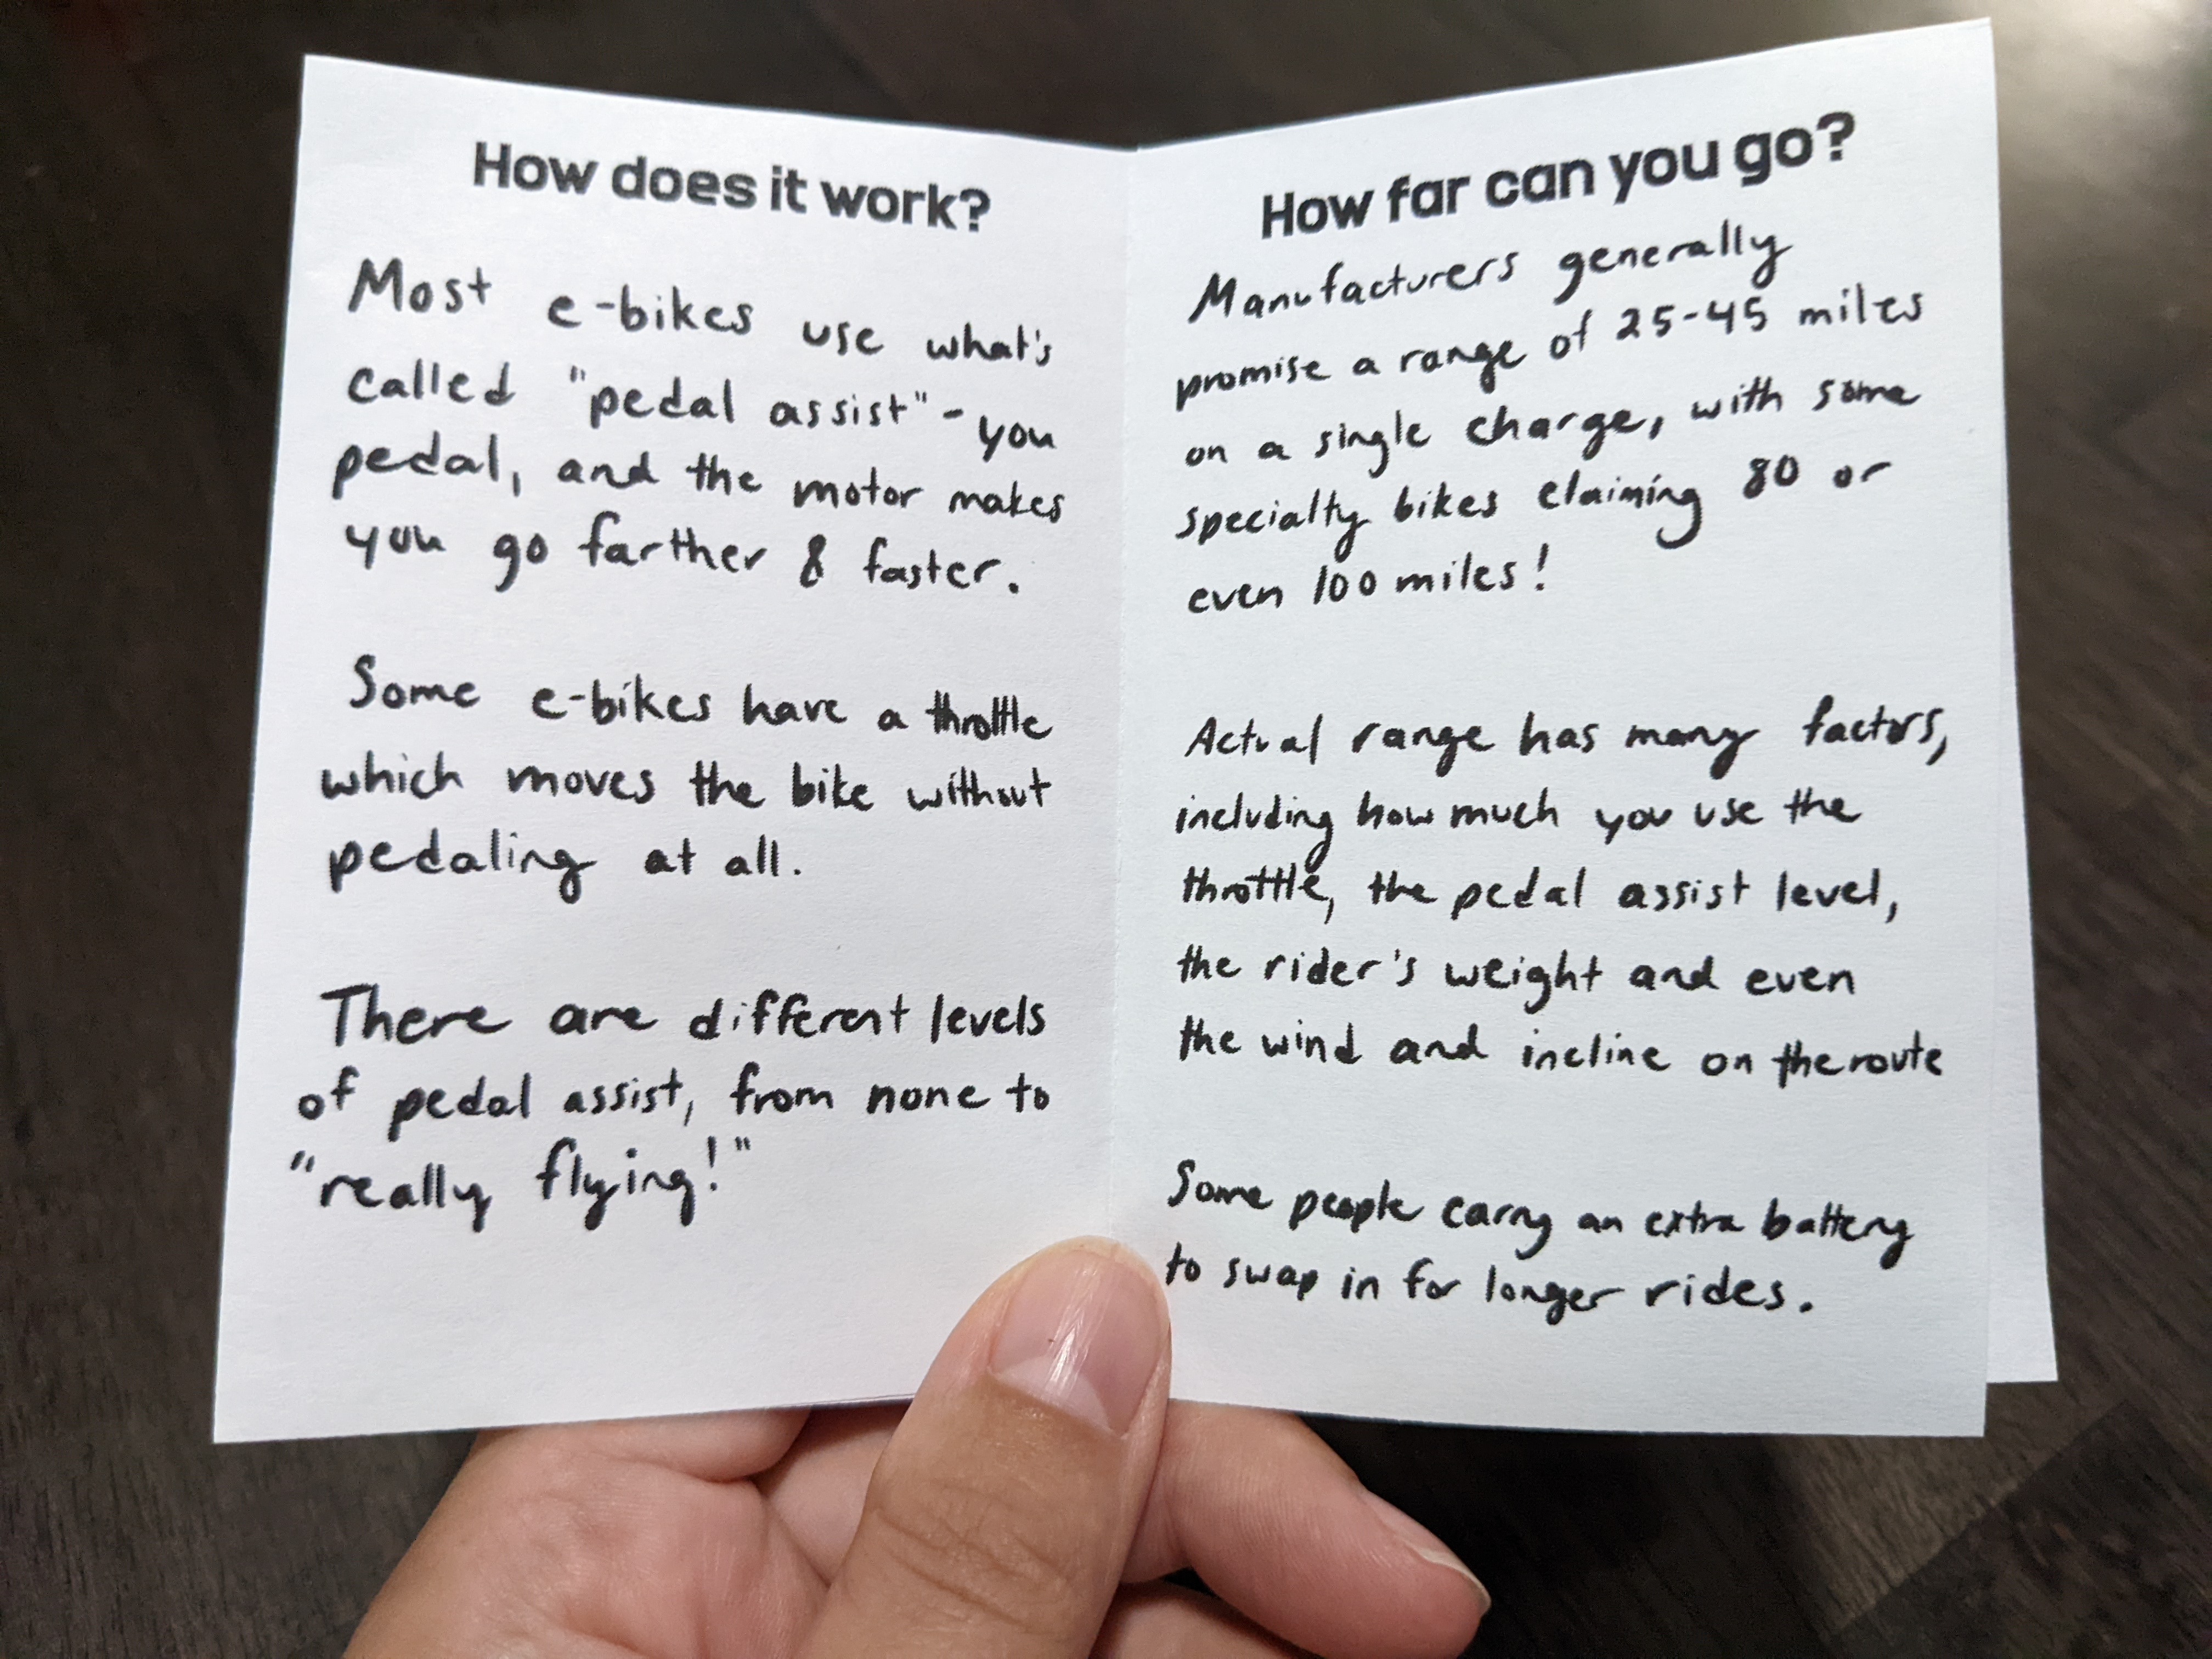 How does it work?
Most e-bikes use what's
called "pedal assist" - you
pedal, and the motor makes
you go farther & faster.
Some e-bikes have a throttle
which moves the bike without
pedaling at all.
There are different levels
of pedal assist, from none to
"really flying!"
How far can you go?
Manufacturers generally
promise a range of 25-45 miles
on a single charge, with some
specialty bikes claiming 80 or
even 100 miles!
Actual range has many factors,
including how much you use the
throttle, the pedal assist level,
the rider's weight and even
the wind and incline on the route
Some people carry an extra battery
to swap in for longer rides.